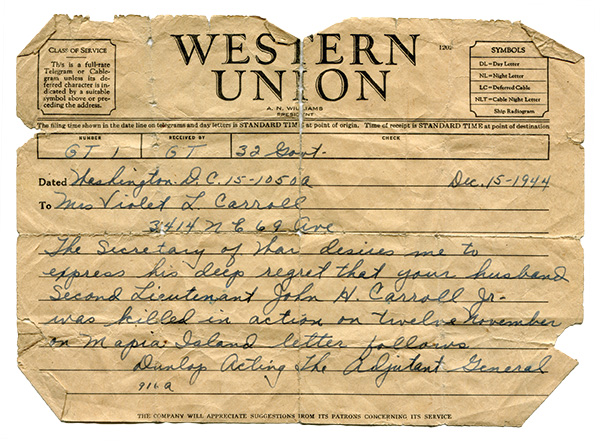 CLASS OF SERVICE
This is a full-rate
Telegram or Cable-
gram unless its de-
ferred character is in-
dicated by a suitable
symbol above or pre-
ceding the address.
WESTERN
UNION
A. N. WILLIAMS
PRESIDENT
SYMBOLS
DL=Day Letter
NL=Night Letter
LC=Deferred Cable
NLT=Cable Night Letter
Ship Radiogram
The filing time shown in the date line on telegrams and day letters is STANDARD TIME at point of origin. Time of receipt is STANDARD TIME at point of destination
NUMBER RECEIVED BY CHECK
GT 1 GT 32 Govt-
Dated Washington D.C. 15-1050a Dec. 15-1944
To Mrs Violet L Carroll
3414 N E 69 Ave
The Secretary of War desires me to
express his deep regret that your husband
Second Lieutenant John H. Carroll Jr-
was killed in action on twelve November
on Mapia Island letter follows
Dunlop Acting The Adjutant General
916a
THE COMPANY WILL APPRECIATE SUGGESTIONS FROM ITS PATRONS CONCERNING ITS SERVICE